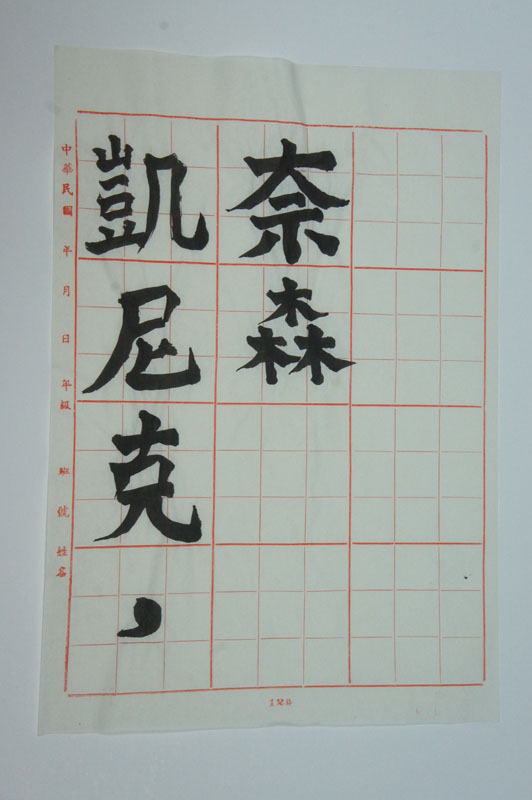 奈森
凱尼克，
中華民國 年 月 日 年級 班 號 姓名